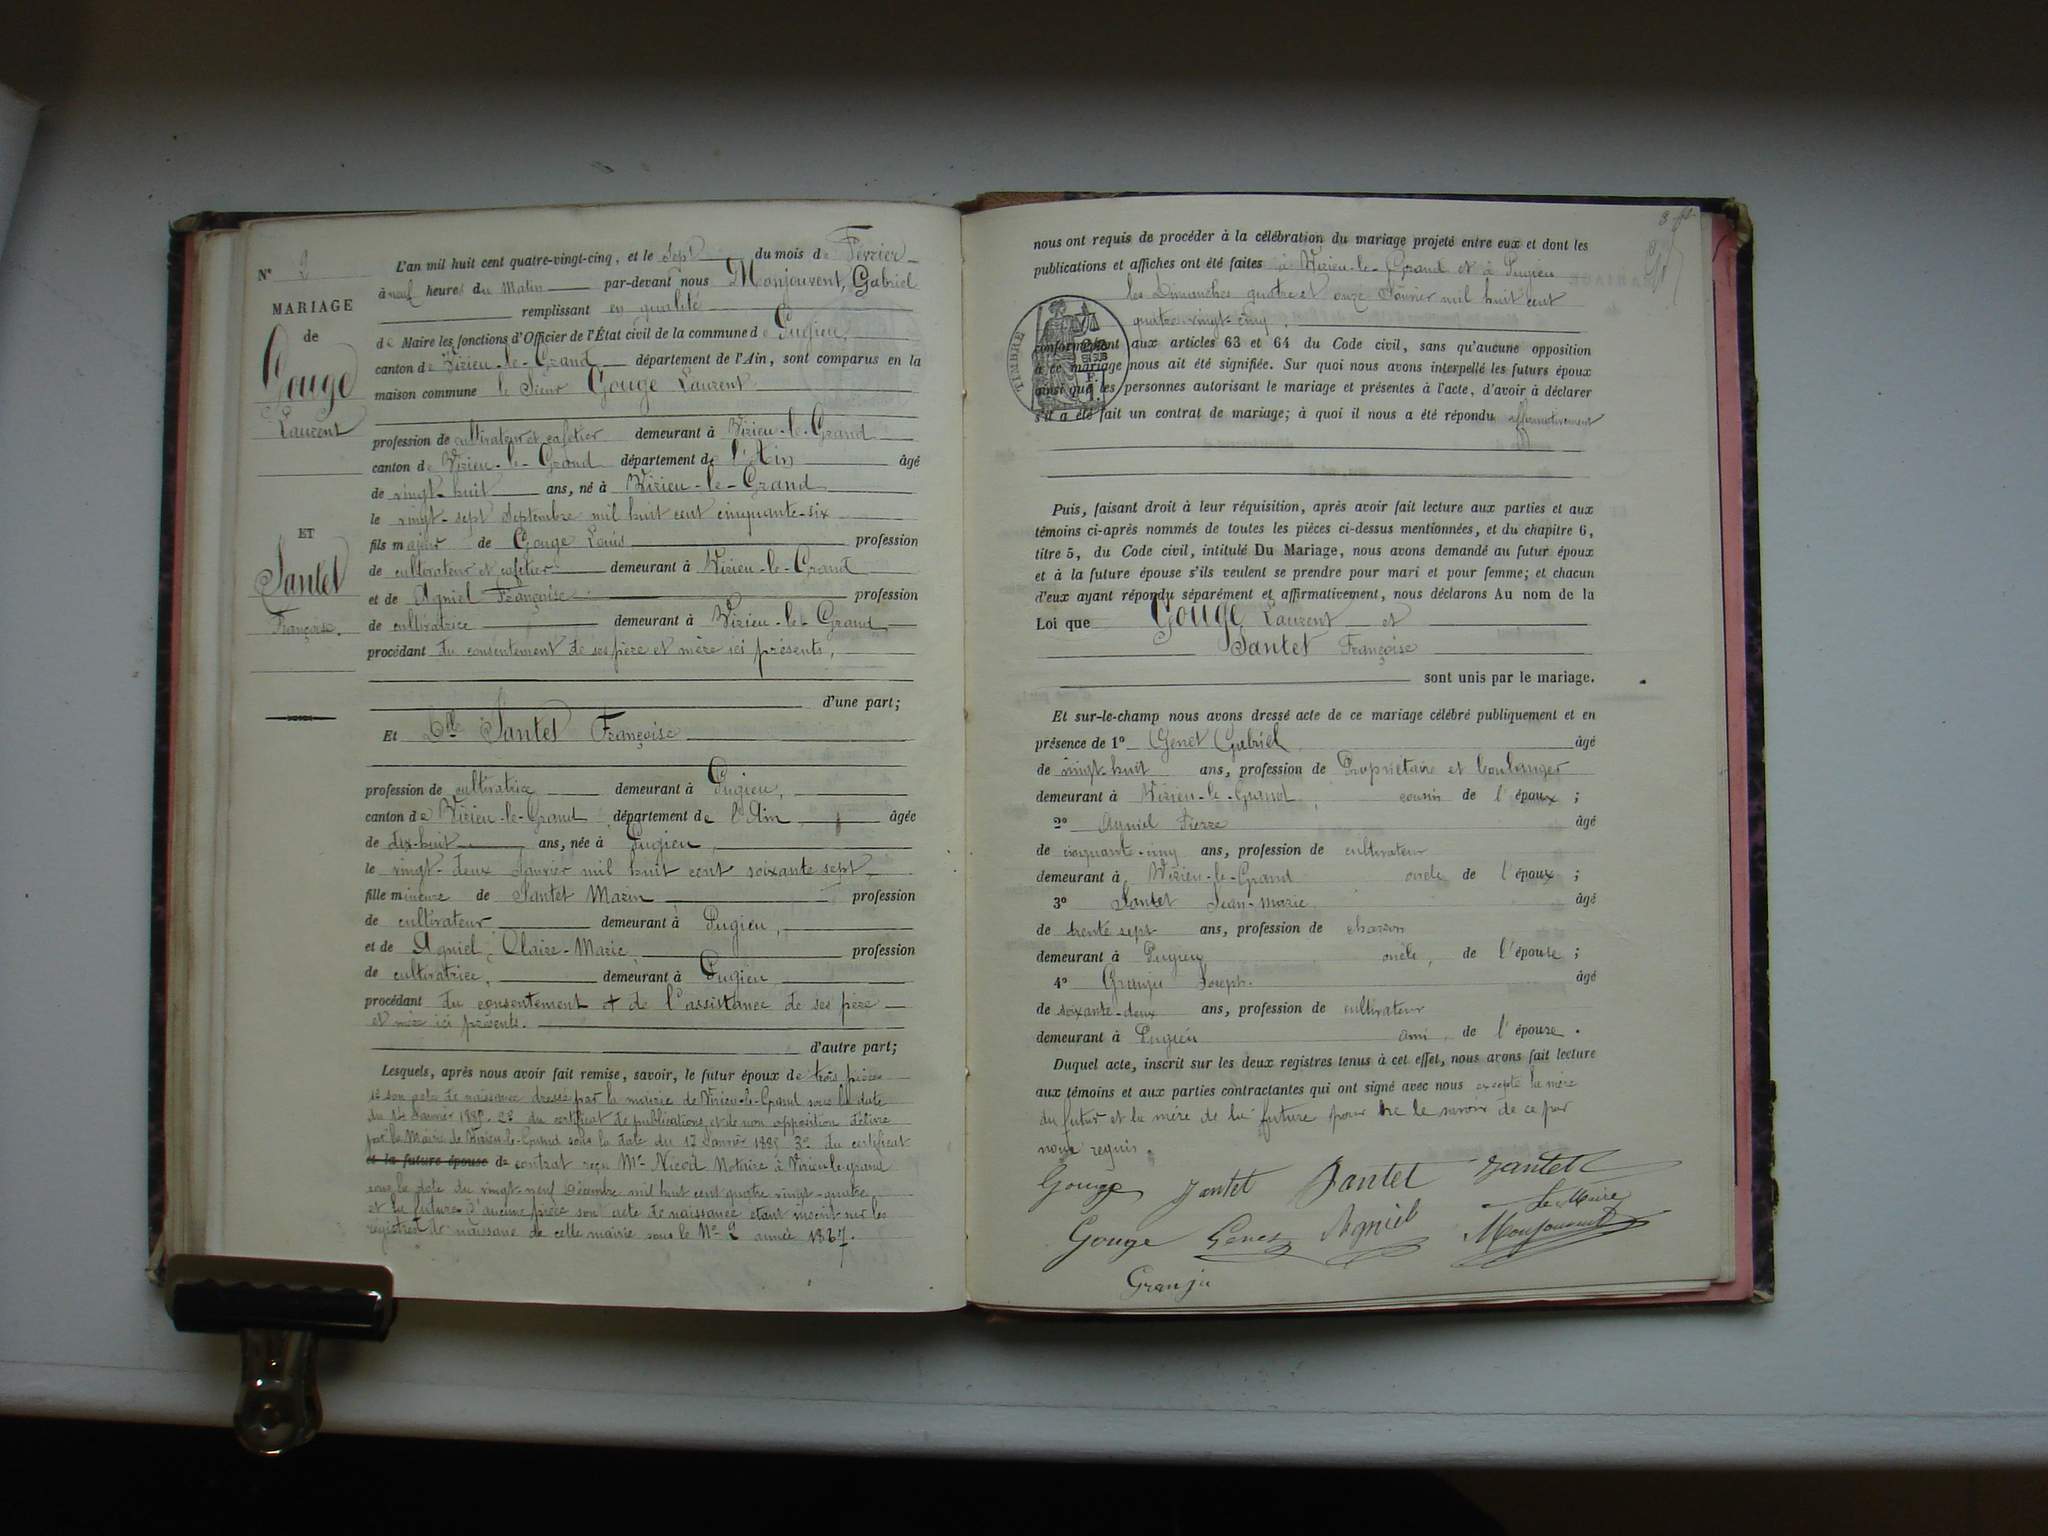 N° 2
MARIAGE
de
Gouge
Laurent
ET
Jantet
Françoise.
L'an mil huit cent quatre-vingt-cinq, et le sept du mois de Février
à neuf heures du Matin par-devant nous Monjouvent, Gabriel
remplissant en qualité
de Maire les fonctions d'Officier de l'État civil de la commune de Pugieu,
canton de Virieu-le-Grand, département de l'Ain, sont comparus en la
maison commune le Sieur Gouge Laurent
profession de cultivateur et cafetier demeurant à Virieu-le-Grand
canton de Virieu-le-Grand département de l'Ain âgé
de vingt-huit ans, né à Virieu-le-Grand
le vingt-sept Septembre mil huit cent cinquante-six
fils majeur de Gouge Louis profession
de cultivateur et cafetier demeurant à Virieu-le-Grand
et de Agniel Françoise profession
de cultivatrice demeurant à Virieu-le-Grand
procédant du consentement de ses père et mère ici présents,
d'une part;
Et Dlle Jantet Françoise
profession de cultivatrice demeurant à Pugieu,
canton de Virieu-le-Grand département de l'Ain, âgée
de dix-huit ans, née à Pugieu,
le vingt-deux Janvier mil huit cent soixante sept,
fille mineure de Jantet Marin profession
de cultivateur demeurant à Pugieu,
et de Agniel, Claire-Marie, profession
de cultivatrice, demeurant à Pugieu
procédant du consentement et de l'assistance de ses père
et mère ici présents.
d'autre part;
Lesquels, après nous avoir fait remise, savoir, le futur époux de trois pièces
1° son acte de naissance dressé par la mairie de Virieu-le-Grand sous la date
du Janvier 1885 2° du certificat de publications et de non opposition délivré
par le Maire de Virieu-le-Grand sous la date du 17 Janvier 1885 3° du certificat
et la future épouse de contrat reçu Me Nicod Notaire à Virieu le grand
sous la date du vingt-neuf Décembre mil huit cent quatre vingt-quatre
et la future d'aucune pièce son acte de naissance étant inscrit sur les
registres de naissane de celle mairie sous le No 2 année 1867.
nous ont requis de procéder à la célébration du mariage projeté entre eux et dont les
publications et affiches ont été faites à Virieu-le-Grand et à Pugieu
les Dimanches quatre et onze Janvier mil huit cent
quatre-vingt-cinq,
TIMBRE
conformément aux articles 63 et 64 du Code civil, sans qu'aucune opposition
à ce mariage nous ait été signifiée. Sur quoi nous avons interpellé les futurs époux
ainsi que les personnes autorisant le mariage et présentes à l'acte, d'avoir à déclarer
s'il a été fait un contrat de mariage; à quoi il nous a été répondu affirmativement
Puis, faisant droit à leur réquisition, après avoir fait lecture aux parties et aux
témoins ci-après nommés de toutes les pièces ci-dessus mentionnées, et du chapitre 6,
titre 5, du Code civil, intitulé Du Mariage, nous avons demandé au futur époux
et à la future épouse s'ils veulent se prendre pour mari et pour femme; et chacun
d'eux ayant répondu séparément et affirmativement, nous déclarons Au nom de la
Loi que Gouge Laurent et
Jantet Françoise
sont unis par le mariage.
Et sur-le-champ nous avons dressé acte de ce mariage célébré publiquement et en
présence de 1° Genet Gabriel, âgé
de vingt-huit ans, profession de Propriétaire et boulanger
demeurant à Virieu-le-Grand, cousin de l'époux;
2° Agniel Pierre âgé
de cinquante-cinq ans, profession de cultivateur
demeurant à Virieu-le-Grand oncle de l'époux;
3° Jantet Jean-Marie, âgé
de trente sept ans, profession de charron
demeurant à Pugieu oncle, de l'épouse;
4° Granju Joseph. âgé
de soixante-deux ans, profession de cultivateur
demeurant à Pugieu ami, de l'épouse.
Duquel acte, inscrit sur les deux registres tenus à cet effet, nous avons fait lecture
aux témoins et aux parties contractantes qui ont signé avec nous excepté la mère
du futur et la mère de la future pour ne le savoir de ce par
nous requis.
Gouge Jantet Jantet Jantet
Le Maire
Gouge Genet Agniel Monjouvent
Granju